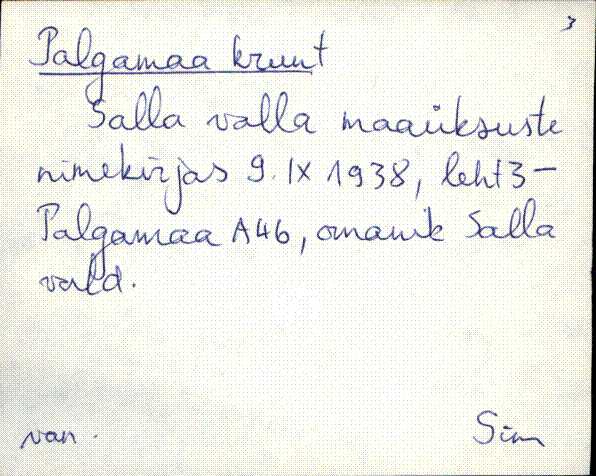 3
Palgamaa krunt
Salla valla maaüksuste
nimekirjas 9. IX 1938, leht 3 –
Palgamaa A46, omanik Salla
vald.
van. Sim